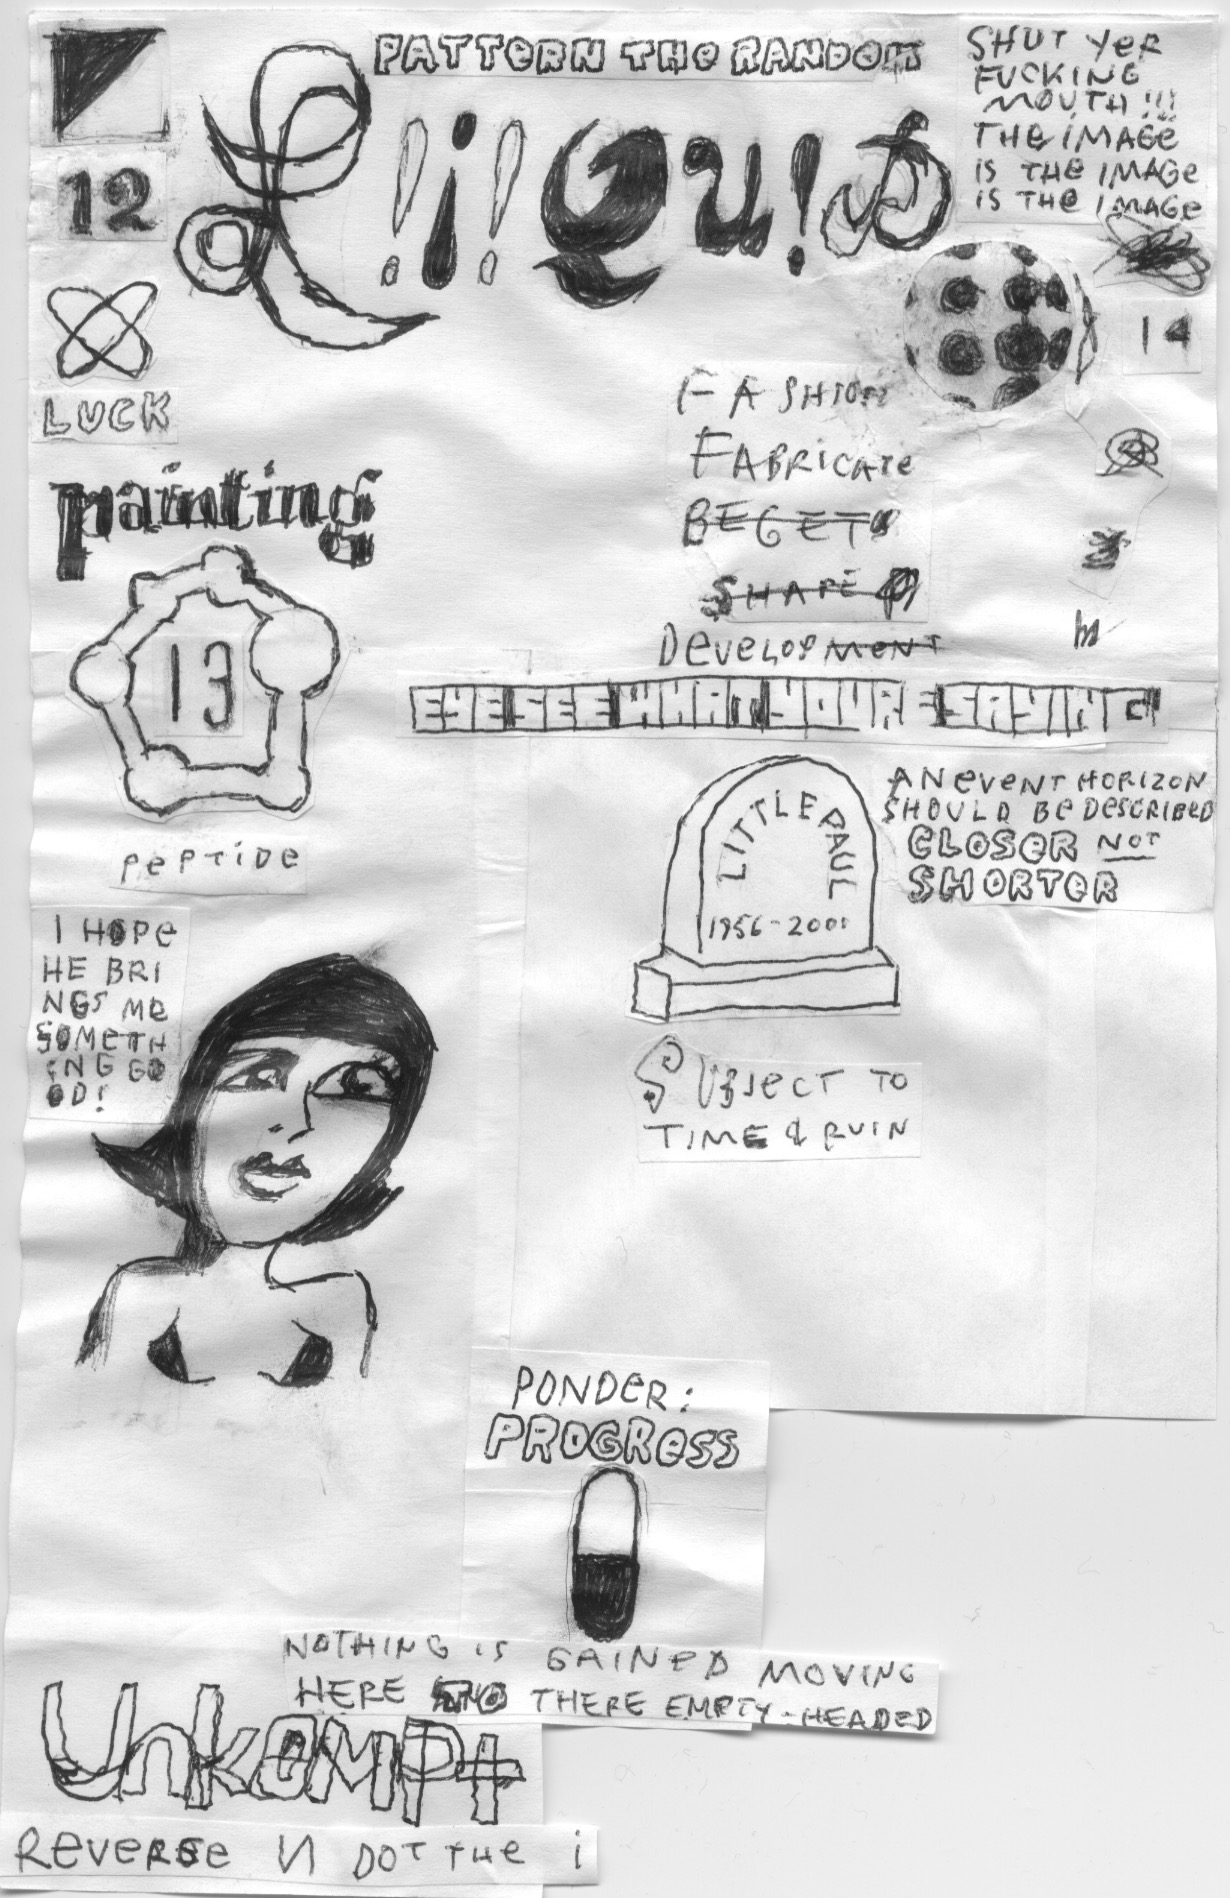 PATTERN THE RANDOM
SHUT YER
FUCKING
MOUTH!!!
THE IMAGE
IS THE IMAGE
IS THE IMAGE
12
L!i!QU!D
14
LUCK
FASHION
FABRICATE
BEGETS
SHAPE
DEVELOPMENT
painting
13
EYE SEE WHAT YOU ARE SAYING
PEPTIDE
LITTLE PAUL
1956-2001
AN EVENT HORIZON
SHOULD BE DESCRIBED
CLOSER NOT
SHORTER
I HOPE
HE BRI
NGS ME
SOMETH
ING GO
OD!
SUBJECT TO
TIME & RUIN
PONDER:
PROGRESS
NOTHING IS GAINED MOVING
HERE TO THERE EMPTY-HEADED
UnkEMPt
REVERSE И DOT THE i